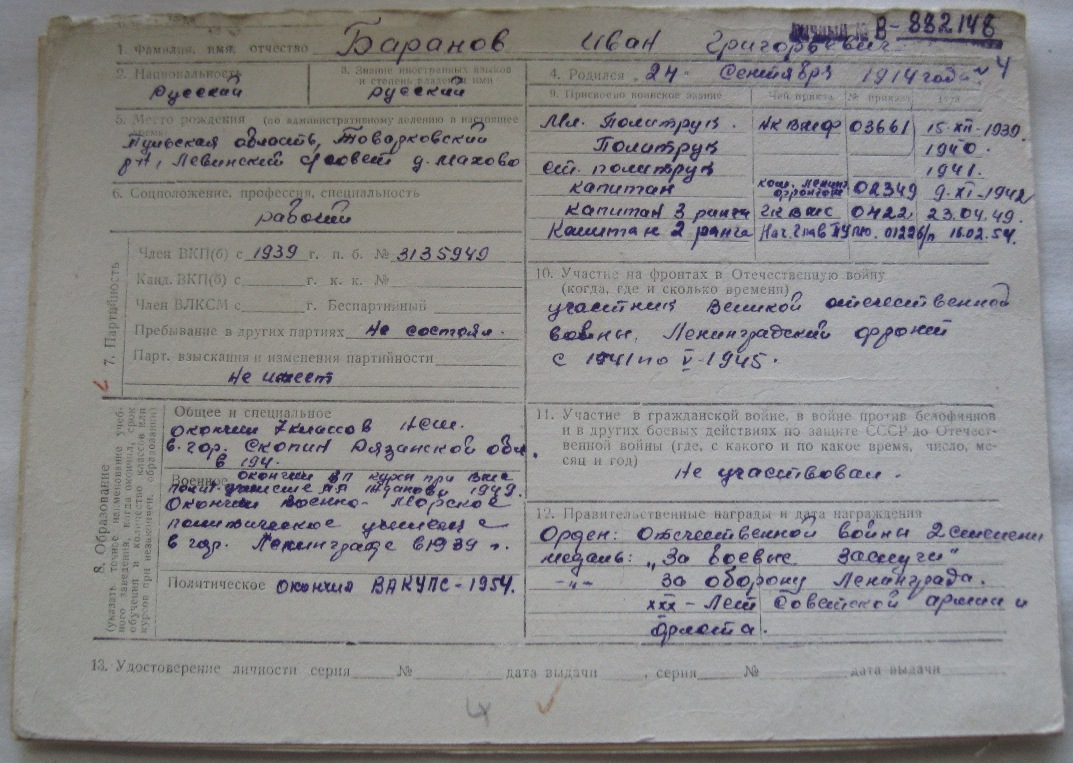 Личный № В-882148
1. Фамилия, имя, отчество Баранов Иван Григорьевич
2. Национальность
русский
3. Знание иностранных языков
и степень владения ими
русский
4. Родился „24" Сентября 1914 года
5. Место рождения (по административному делению в настоящее
время)
Тульская область, Товарковский
р-н, Левинский с/совет д. Махово
6. Соцположение, профессия, специальность
рабочий
7. Партийность
Член ВКП(б) с 1939 г. п. б. № 3135949
Канд. ВКП(б) с г. к. к. №
Член ВЛКСМ с г. Беспартийный
Пребывание в других партиях не состоял.
Парт. взыскания и изменения партийности
не имеет
8. Образование
(указать точное наименование учеб-
ного заведения, когда окончил, срок
обучения и количество классов или
курсов при незакончен. образовании)
Общее и специальное
окончил 7 классов
в гор. Скопин Рязанской обл.
в 194
Военное окончил ВП курсы при Вмс
полит. училище Жданова 1949.
Окончил Военно-Морское
политическое училище
в гор. Ленинграде в 1939 г.
Политическое окончил ВАКУПС-1954.
9. Присвоено воинское звание Чей приказ № приказа Дата
Мл. Политрук. НК ВМФ 03661 15-XII-1939.
Политрук 1940.
ст. политрук 1941.
капитан 02349 9-XI-1942
капитан 3 ранга ГК ВМС 0422 23.04.49.
Капитан 2 ранга Нач. Глав ПУ 01226/п 16.02.54.
10. Участие на фронтах в Отечественную войну
(когда, где и сколько времени)
участник Великой отечественной
войны, Ленинградский фронт
с 1941 по V-1945.
11. Участие в гражданской войне, в войне против белофиннов
и в других боевых действиях по защите СССР до Отечест-
венной войны (где, с какого и по какое время, число, ме-
сяц и год)
Не участвовал.
12. Правительственные награды и дата награждения
Орден: Отечественной войны 2 степени
медаль: „За боевые заслуги"
-„- За оборону Ленинграда.
XXX-Лет Советской армии и
Флота.
13. Удостоверение личности серия № дата выдачи , серия № дата выдачи